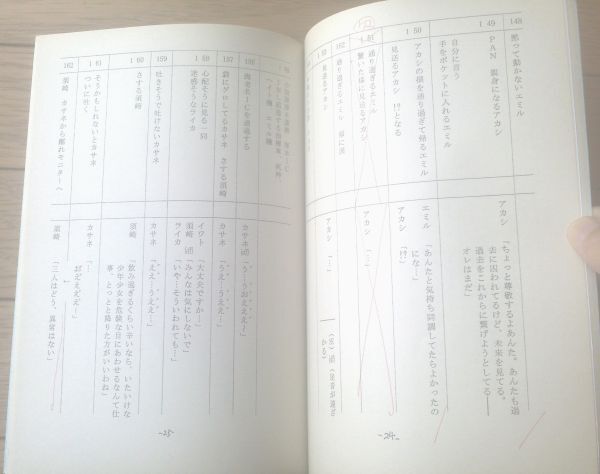 148
黙って動かないエミル
149
PAN 横倉になるアカシ
自分に言う
手をポケットに入れるエミル
アカシの横を通り過ぎて帰るエミル
150
見送るアカシ !?となる
151
通り過ぎるエミル
驚いた様に見送るアカシ
152
通り過ぎるエミル 頬に涙
153
見送るアカシ
アカシ
「ちょっと尊敬するよあんた。あんたも過
去に囚われてるけど、未来を見てる。
過去をこれからに繋げようとしてる――
オレはまだ」
エミル
「あんたと気持ち同調してたらよかったの
にな―」
アカシ
「!?」
アカシ
「…」
アカシ
「…」
-24-
157
袋にゲロしてるカサネ さする須崎
158
心配そうに見る一同
迷惑そうなライカ
159
吐きそうで吐けないカサネ
160
さする須崎
161
そうかもしれないとカサネ
ついに吐く
162
須崎 カサネから離れモニターへ
カサネ
「う…うおええ―」
カサネ
「う…うええ―」
イワト
「大丈夫ですか―」
須崎
「みんなは気にしないで」
ライカ
「いや…そういわれても…」
カサネ
「ええ…うえ―」
須崎
「飲み過ぎるくらい辛いなら、いたいけな
少年少女を危険な目にあわせるなんて仕
事、とっとと降りた方がいいわね」
カサネ
「…
おぞええええ―」
須崎
「三人はどう、異常はない」
-25-